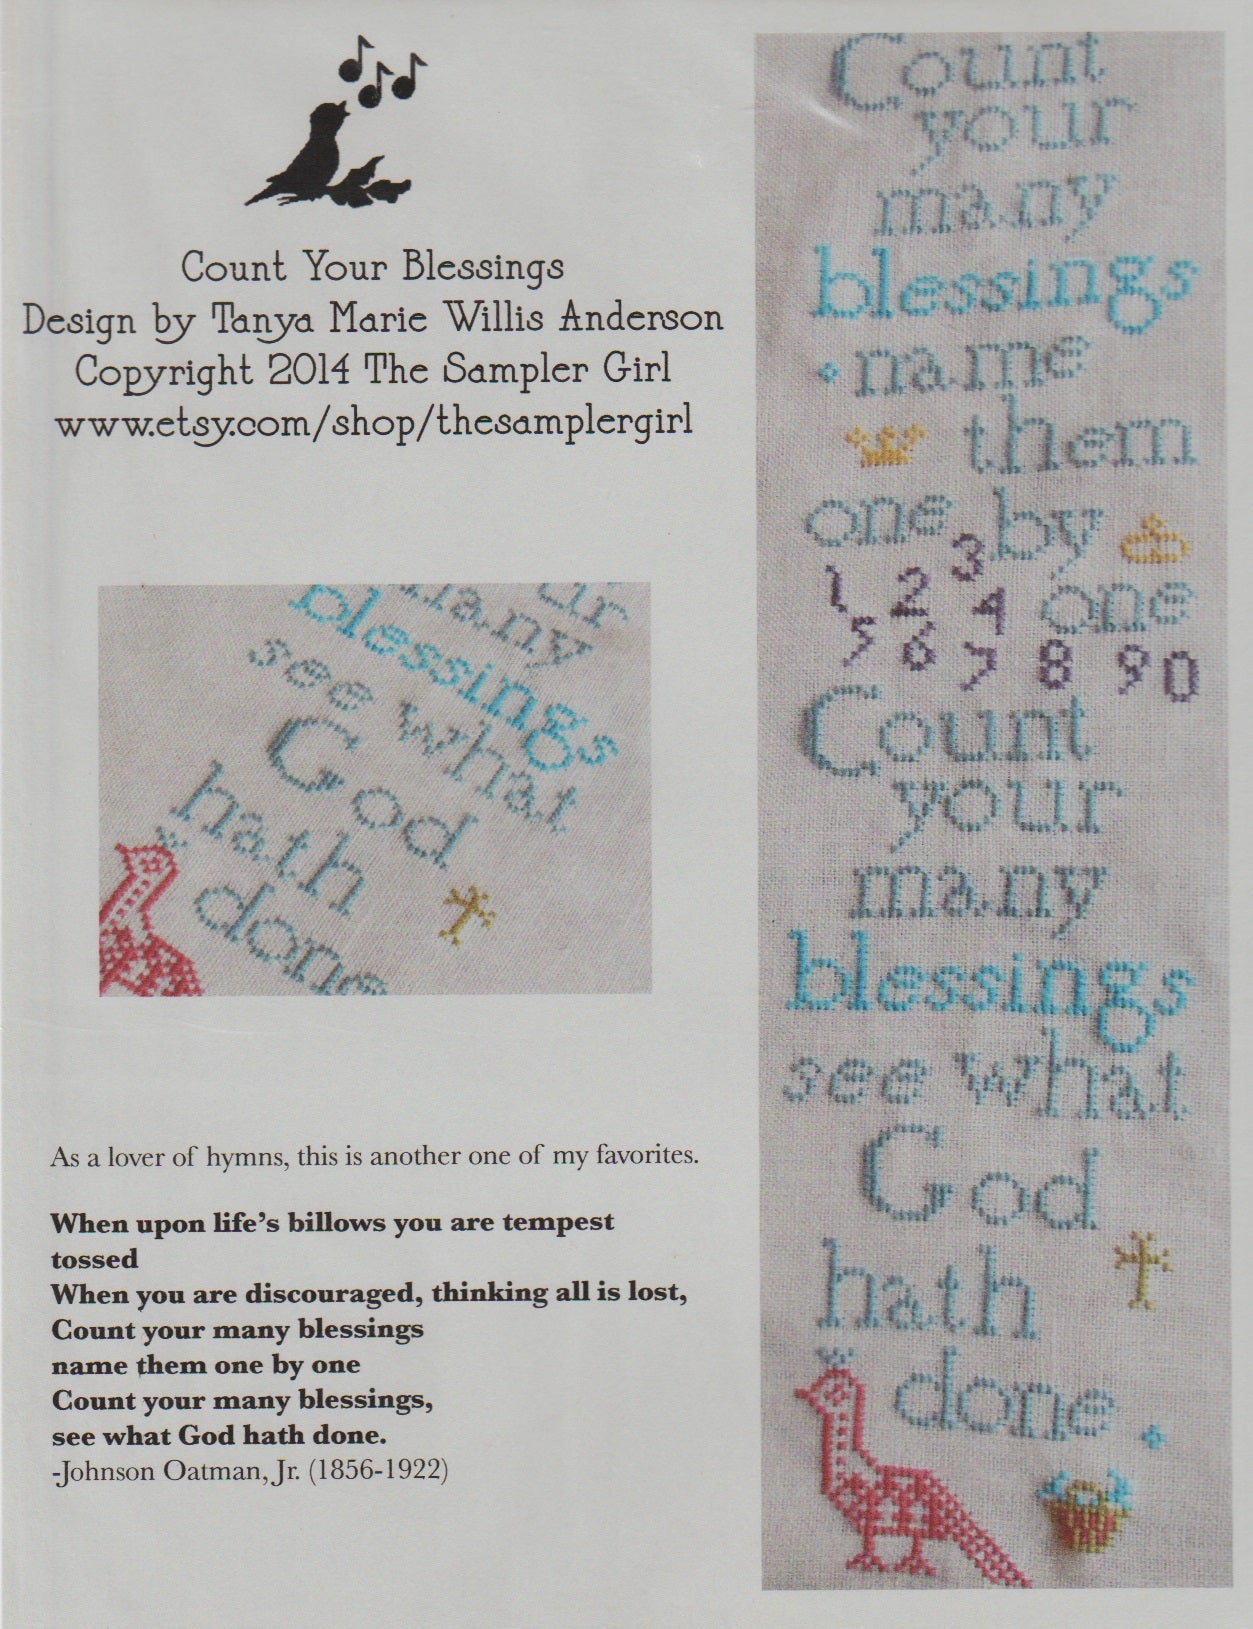 Count Your Blessings
Design by Tanya Marie Willis Anderson
Copyright 2014 The Sampler Girl
www.etsy.com/shop/thesamplergirl
many
blessings
see what
God
hath
done
As a lover of hymns, this is another one of my favorites.
When upon life's billows you are tempest
tossed
When you are discouraged, thinking all is lost,
Count your many blessings
name them one by one
Count your many blessings,
see what God hath done.
-Johnson Oatman, Jr. (1856-1922)
Count
your
many
blessings
name
them
one by
1 2 3 4 one
5 6 7 8 9 0
Count
your
many
blessings
see what
God
hath
done.